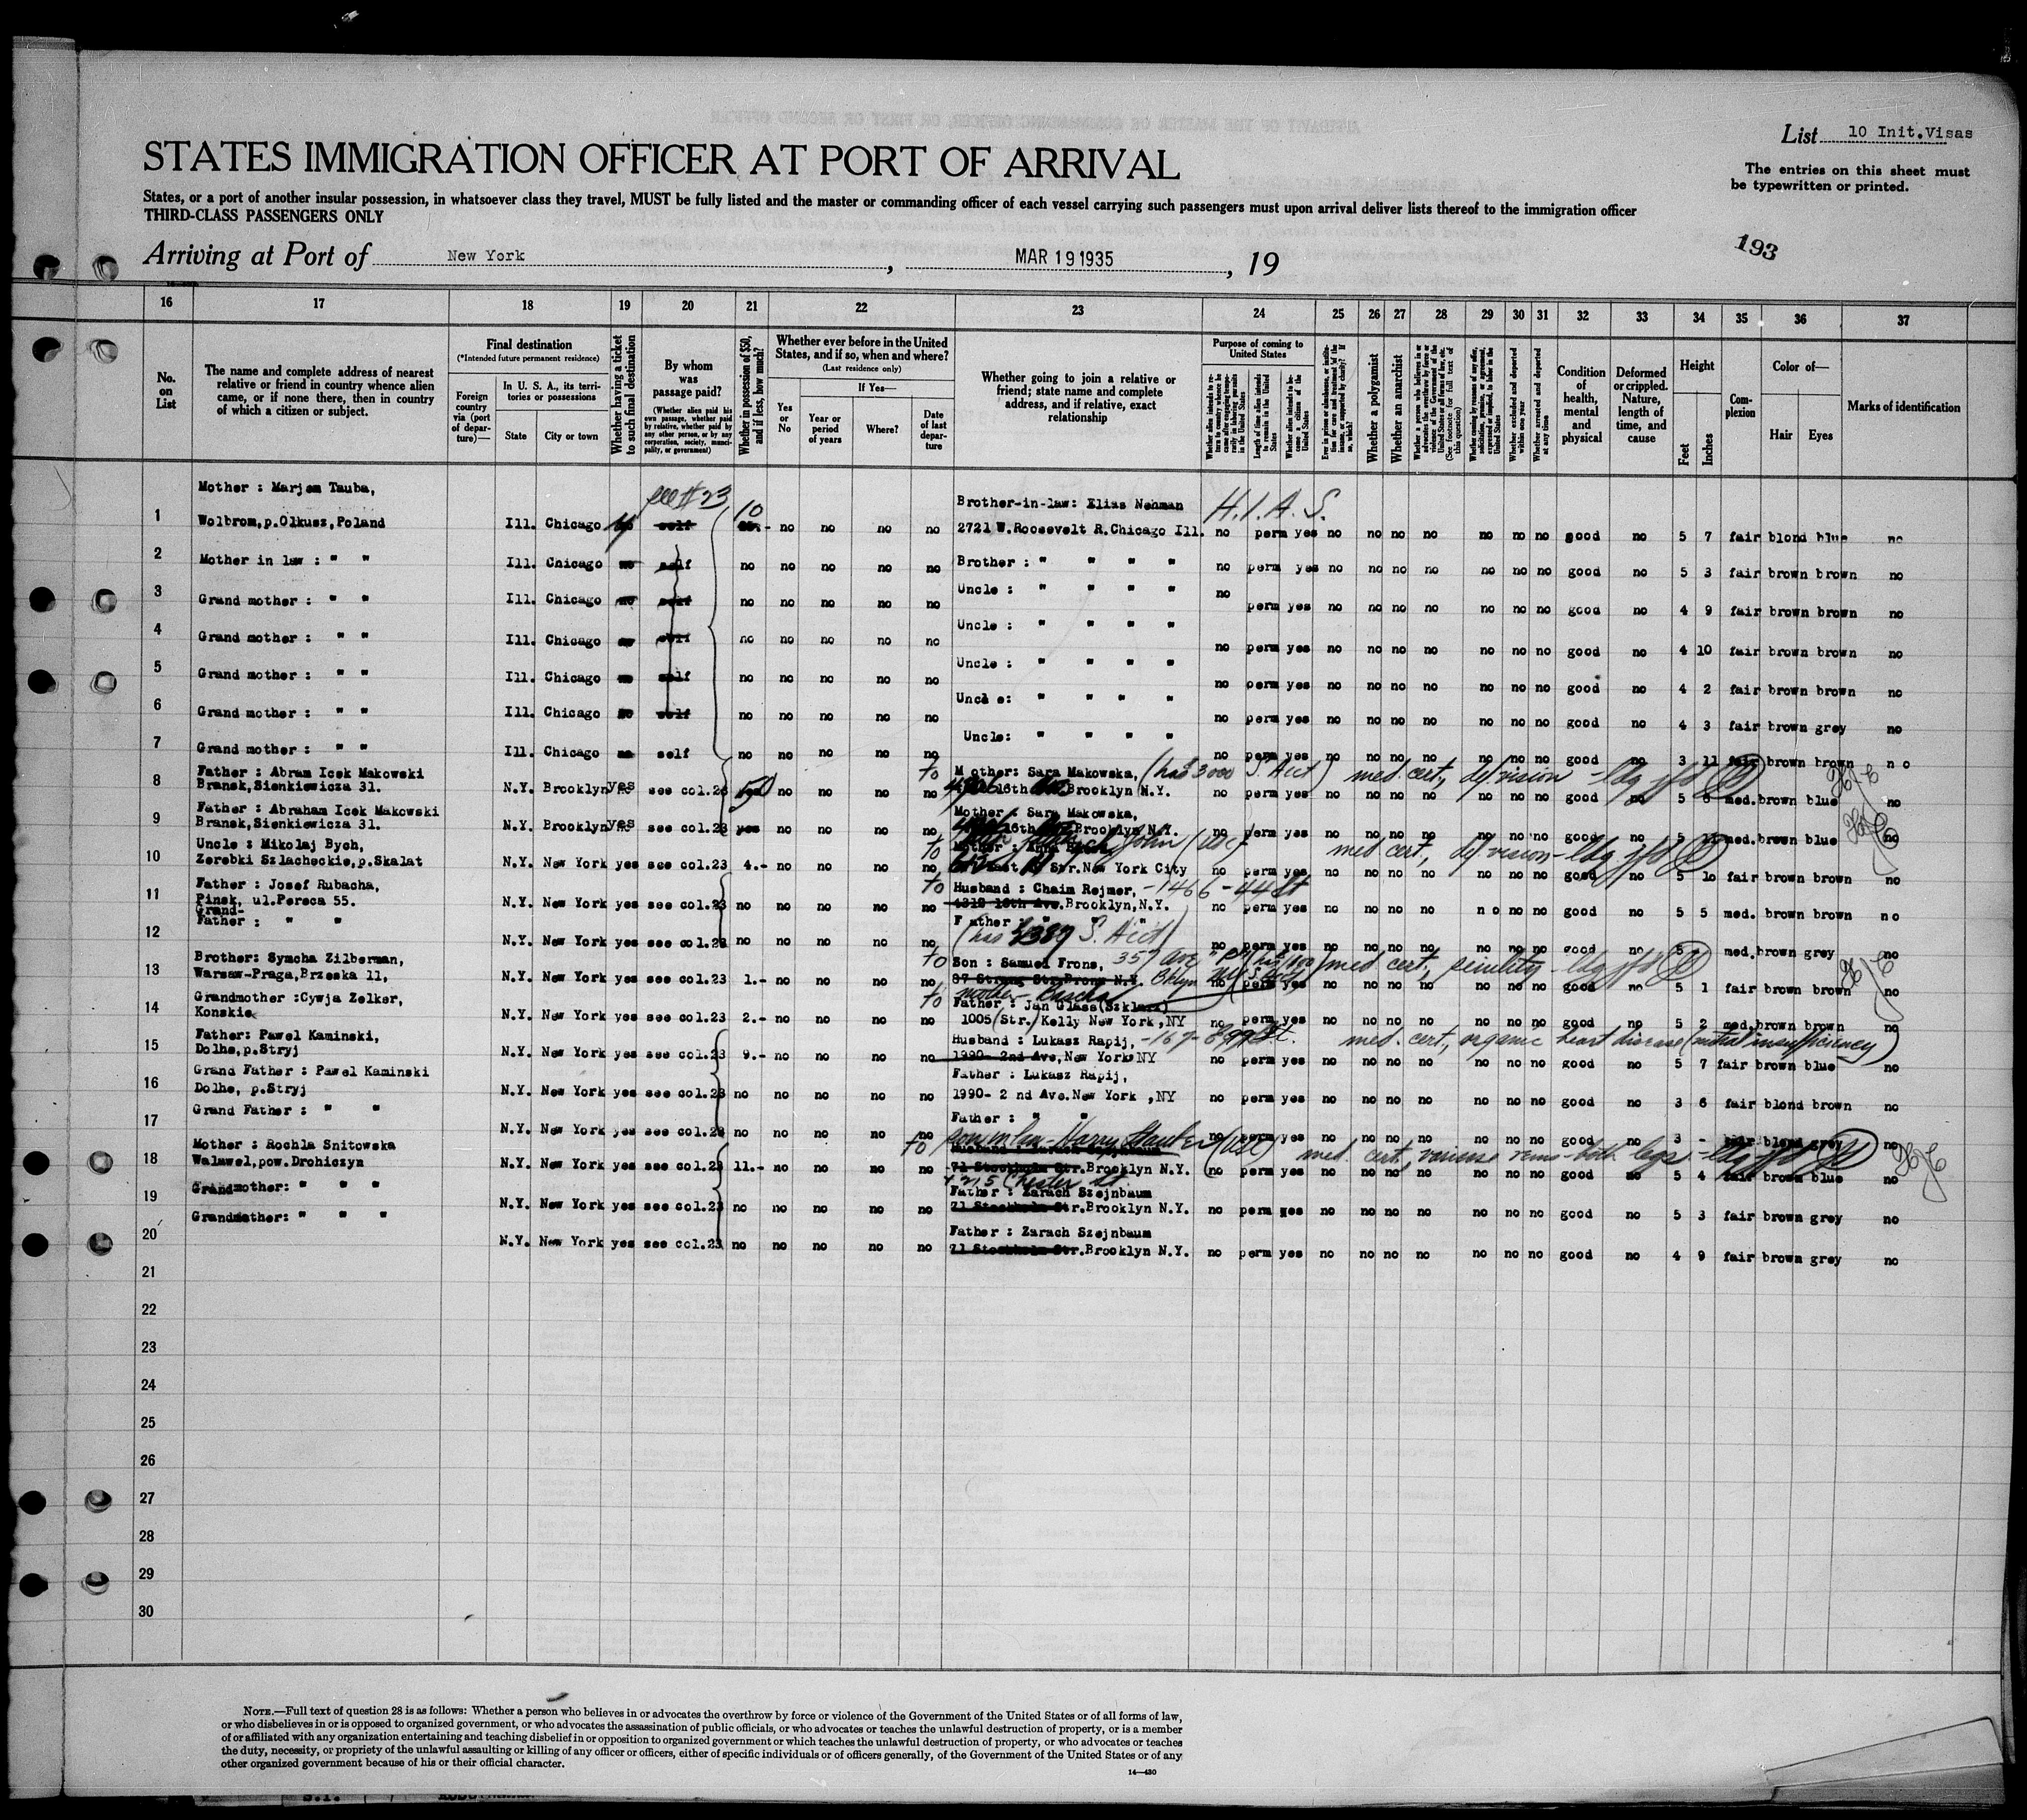 List 10 Init.Visas
STATES IMMIGRATION OFFICER AT PORT OF ARRIVAL
The entries on this sheet must
be typewritten or printed.
States, or a port of another insular possession, in whatsoever class they travel, MUST be fully listed and the master or commanding officer of each vessel carrying such passengers must upon arrival deliver lists thereof to the immigration officer
THIRD-CLASS PASSENGERS ONLY
193
Arriving at Port of New York, MAR 19 1935, 19
16 17 18 19 20 21 22 23 24 25 26 27 28 29 30 31 32 33 34 35 36 37
No. on List
The name and complete address of nearest relative or friend in country whence alien came, or if none there, then in country of which a citizen or subject.
Final destination
(*Intended future permanent residence)
Foreign country via (port of departure)—
In U. S. A., its territories or possessions
State
City or town
Whether having a ticket to such final destination
By whom was passage paid?
(Whether alien paid his own passage, whether paid by relative, whether paid by any other person, or by any corporation, society, municipality, or government)
Whether in possession of $50, and if less, how much?
Whether ever before in the United States, and if so, when and where?
(Last residence only)
Yes or No
If Yes—
Year or period of years
Where?
Date of last departure
Whether going to join a relative or friend; state name and complete address, and if relative, exact relationship
Purpose of coming to United States
Length of time alien intends to remain in the United States
Whether alien intends to become a citizen of the United States
Whether a polygamist
Whether an anarchist
(See footnote for full text of this question)
Whether excluded and deported within one year
Whether arrested and deported at any time
Condition of health, mental and physical
Deformed or crippled. Nature, length of time, and cause
Height
Feet
Inches
Complexion
Color of—
Hair
Eyes
Marks of identification
1 Mother : Marjem Tauba, Brother-in-law: Elias Nehman H.I.A.S.
Wolbrom,p.Olkusz,Poland Ill. Chicago self 10 - no no no no 2721 W.Roosevelt R.Chicago Ill. no perm yes no no no no no no no good no 5 7 fair blond blue no
2 Mother in law : " " Ill. Chicago no self no no no no no Brother : " " " " no perm yes no no no no no no no good no 5 3 fair brown brown no
3 Grand mother : " " Ill. Chicago no self no no no no no Uncle : " " " " no perm yes no no no no no no no good no 4 9 fair brown brown no
4 Grand mother : " " Ill. Chicago no self no no no no no Uncle : " " " " no perm yes no no no no no no no good no 4 10 fair brown brown no
5 Grand mother : " " Ill. Chicago no self no no no no no Uncle : " " " " no perm yes no no no no no no no good no 4 2 fair brown brown no
6 Grand mother : " " Ill. Chicago no self no no no no no Unc e: " " " " no perm yes no no no no no no no good no 4 3 fair brown grey no
7 Grand mother : " " Ill. Chicago no self no no no no no Uncle: " " " " no perm yes no no no no no no no good no 3 11 fair brown brown no
8 Father : Abram Icek Makowski to Mother: Sara Makowska, (has 3000 S. Acct) med. cert., def vision
Bransk,Sienkiewicza 31. N.Y. Brooklyn yes see col.23 50 no no no no 16th Brooklyn N.Y. no perm yes no no no no no no no good no 5 6 med. brown blue no
9 Father : Abraham Icek Makowski Mother : Sara Makowska,
Bransk,Sienkiewicza 31. N.Y. Brooklyn yes see col.23 yes no no no no 16th Brooklyn N.Y. no perm yes no no no no no no no good no 5 med. brown blue no
10 Uncle : Mikolaj Bych, to John med cert., def vision
Zerebki Szlacheckie,p.Skalat N.Y. New York yes see col.23 4.- no no no no Str.New York City no perm yes no no no no no no no good no 5 10 fair brown brown no
11 Father : Josef Rubacha, to Husband : Chaim Rejmer, -1466-44 St
Pinsk, ul.Pereca 55. N.Y. New York yes see col.23 no no no no no 4312 16th Ave.Brooklyn,N.Y. no perm yes no no no no no no no good no 5 5 med. brown brown no
12 Grand-
Father : " " Father : " "
N.Y. New York yes see col.23 no no no no no no perm yes no no no no no no no good no 5 med. brown grey no
13 Brother: Symcha Zilberman, to Son : Samuel Frons, 357 med cert., senility
Warsaw-Praga,Brzeska 11, N.Y. New York yes see col.23 1.- no no no no no perm yes no no no no no no no good no 5 1 fair brown brown no
14 Grandmother :Cywja Zelker, to mother Father : Jan Glass(Szklarz)
Konskie N.Y. New York yes see col.23 2.- no no no no 1005 (Str.) Kelly New York,NY no perm yes no no no no no no no good no 5 2 med. brown brown no
15 Father: Pawel Kaminski, Husband : Lukasz Rapij, med. cert., organic heart disease (mitral insufficiency)
Dolhe,p.Stryj N.Y. New York yes see col.23 9.- no no no no 1990- 2nd Ave,New York NY no perm yes no no no no no no no good no 5 7 fair brown blue no
16 Grand Father : Pawel Kaminski Father : Lukasz Rapij,
Dolhe, p.Stryj N.Y. New York yes see col.23 no no no no no 1990- 2 nd Ave.New York ,NY no perm yes no no no no no no no good no 3 6 fair blond brown no
17 Grand Father : " " Father : " "
N.Y. New York yes see col.23 no no no no no no perm yes no no no no no no no good no 3 - fair blond grey no
18 Mother : Rochla Snitowska to son in law - Harry med cert., varicose veins - both legs
Walawel,pow.Drohiczyn N.Y. New York yes see col.23 11.- no no no no 71 Stockholm Str.Brooklyn N.Y. no perm yes no no no no no no no good no 5 4 fair brown blue no
19 Grandmother: " " " Chester St
Father : Zarach Szejnbaum
N.Y. New York yes see col.23 no no no no no 71 Stockholm Str.Brooklyn N.Y. no perm yes no no no no no no no good no 5 3 fair brown grey no
20 Grandmother: " " " Father : Zarach Szejnbaum
N.Y. New York yes see col.23 no no no no no 71 Stockholm Str.Brooklyn N.Y. no perm yes no no no no no no no good no 4 9 fair brown grey no
21
22
23
24
25
26
27
28
29
30
NOTE.—Full text of question 28 is as follows: Whether a person who believes in or advocates the overthrow by force or violence of the Government of the United States or of all forms of law,
or who disbelieves in or is opposed to organized government, or who advocates the assassination of public officials, or who advocates or teaches the unlawful destruction of property, or is a member
of or affiliated with any organization entertaining and teaching disbelief in or opposition to organized government or which teaches the unlawful destruction of property, or who advocates or teaches
the duty, necessity, or propriety of the unlawful assaulting or killing of any officer or officers, either of specific individuals or of officers generally, of the Government of the United States or of any
other organized government because of his or their official character.
14—430